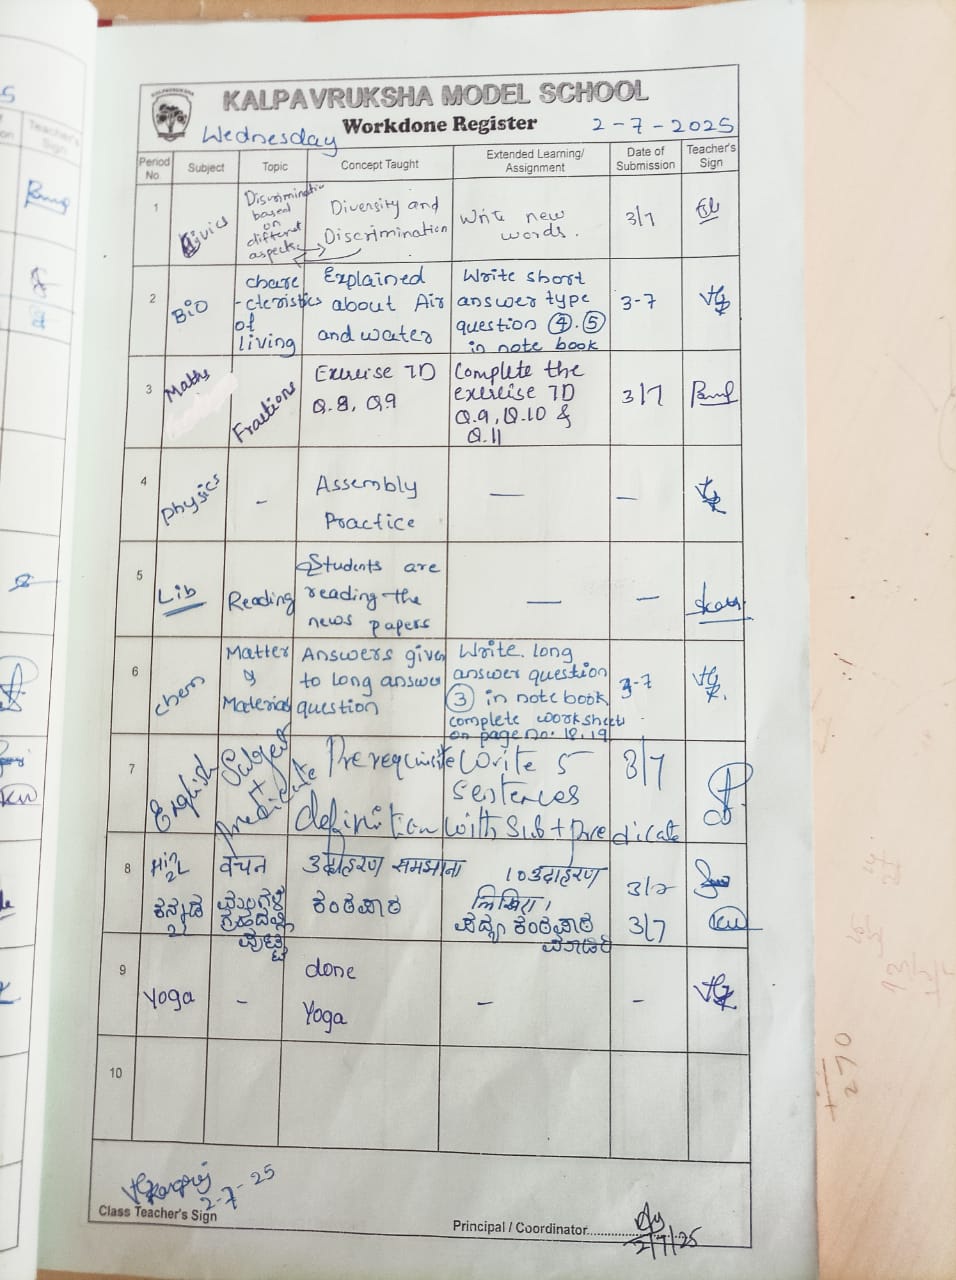 KALPAVRUKSHA MODEL SCHOOL
Wednesday Workdone Register 2-7-2025
Period No Subject Topic Concept Taught Extended Learning/ Assignment Date of Submission Teacher's Sign
1 Civics Discrimination based on different aspects Diversity and Discrimination Write new words. 3/7
2 BiO charecteristics of living Explained about Air and water Write short answer type question 4. 5 in note book 3-7
3 Maths Fractions Exercise 7D Q.8, Q.9 Complete the exercise 7D Q.9, Q.10 & Q.11 3/7
4 Physics - Assembly Practice — —
5 Lib Reading Students are reading the news papers — —
6 chem Matter & Materials Answers given to long answer question Write long answer question 3 in note book complete worksheet on page no. 18, 19 3-7
7 English Subject + Predicate Prerequisite definition Write 5 sentences with Sub + Predicate 3/7
8 Hin 2L वचन उदाहरण समझाना 10 उदाहरण लिखिए। 3/7
ಕನ್ನಡ 2L ಕಂಠಪಾಠ ಪದ್ಯ ಕಂಠಪಾಠ 3/7
9 Yoga - done Yoga - -
10
2-7-25
Class Teacher's Sign
Principal / Coordinator
2/7/25
Teacher's Sign